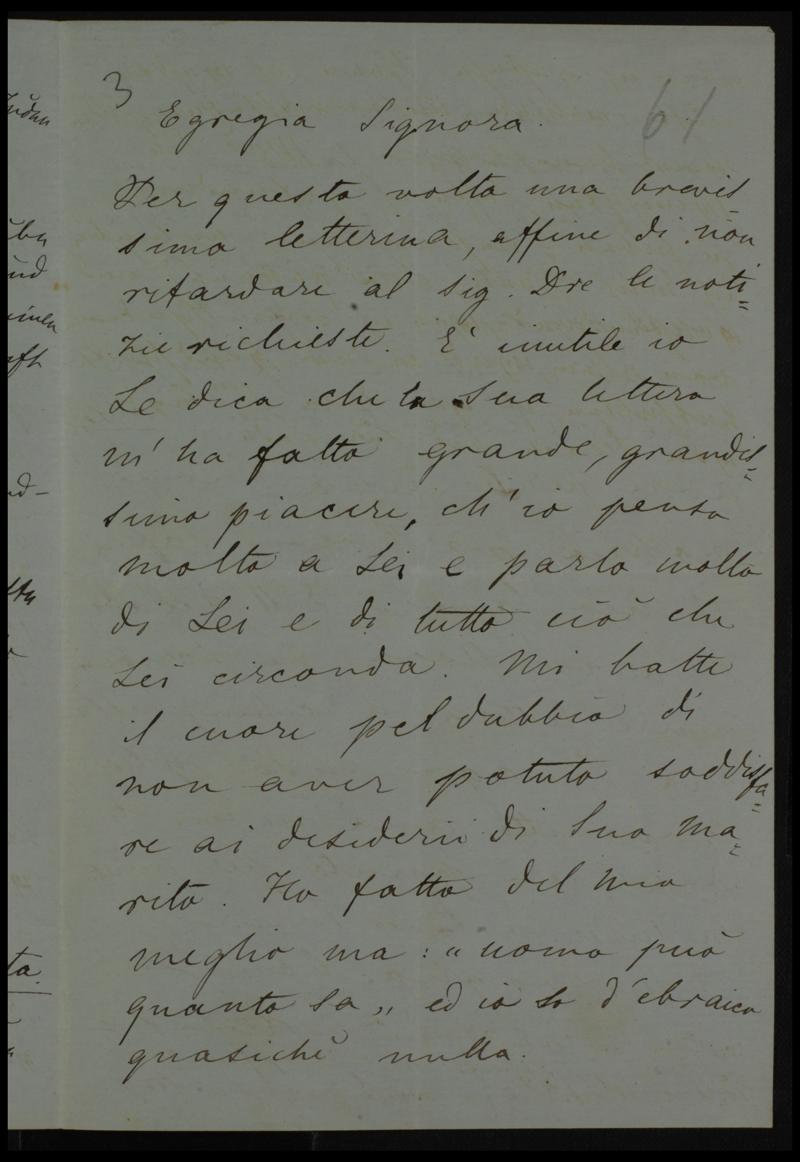 3
61
Egregia Signora.
Per questa volta una brevis
sima letterina, affine di non
ritardare al Sig. Dre le noti=
zie richieste. E' inutile io
Le dica che la Sua lettera
m' ha fatto grande, grandis=
simo piacere, ch' io penso
molto a Lei e parlo molto
di Lei e di tutto ciò che
Lei circonda. Mi batte
il cuore pel dubbio di
non aver potuto soddisfa=
re ai desiderii di Suo ma=
rito. Ho fatto del mio
meglio ma: „ uomo può
quanto sa „ ed io so d'ebraico
quasichè nulla.